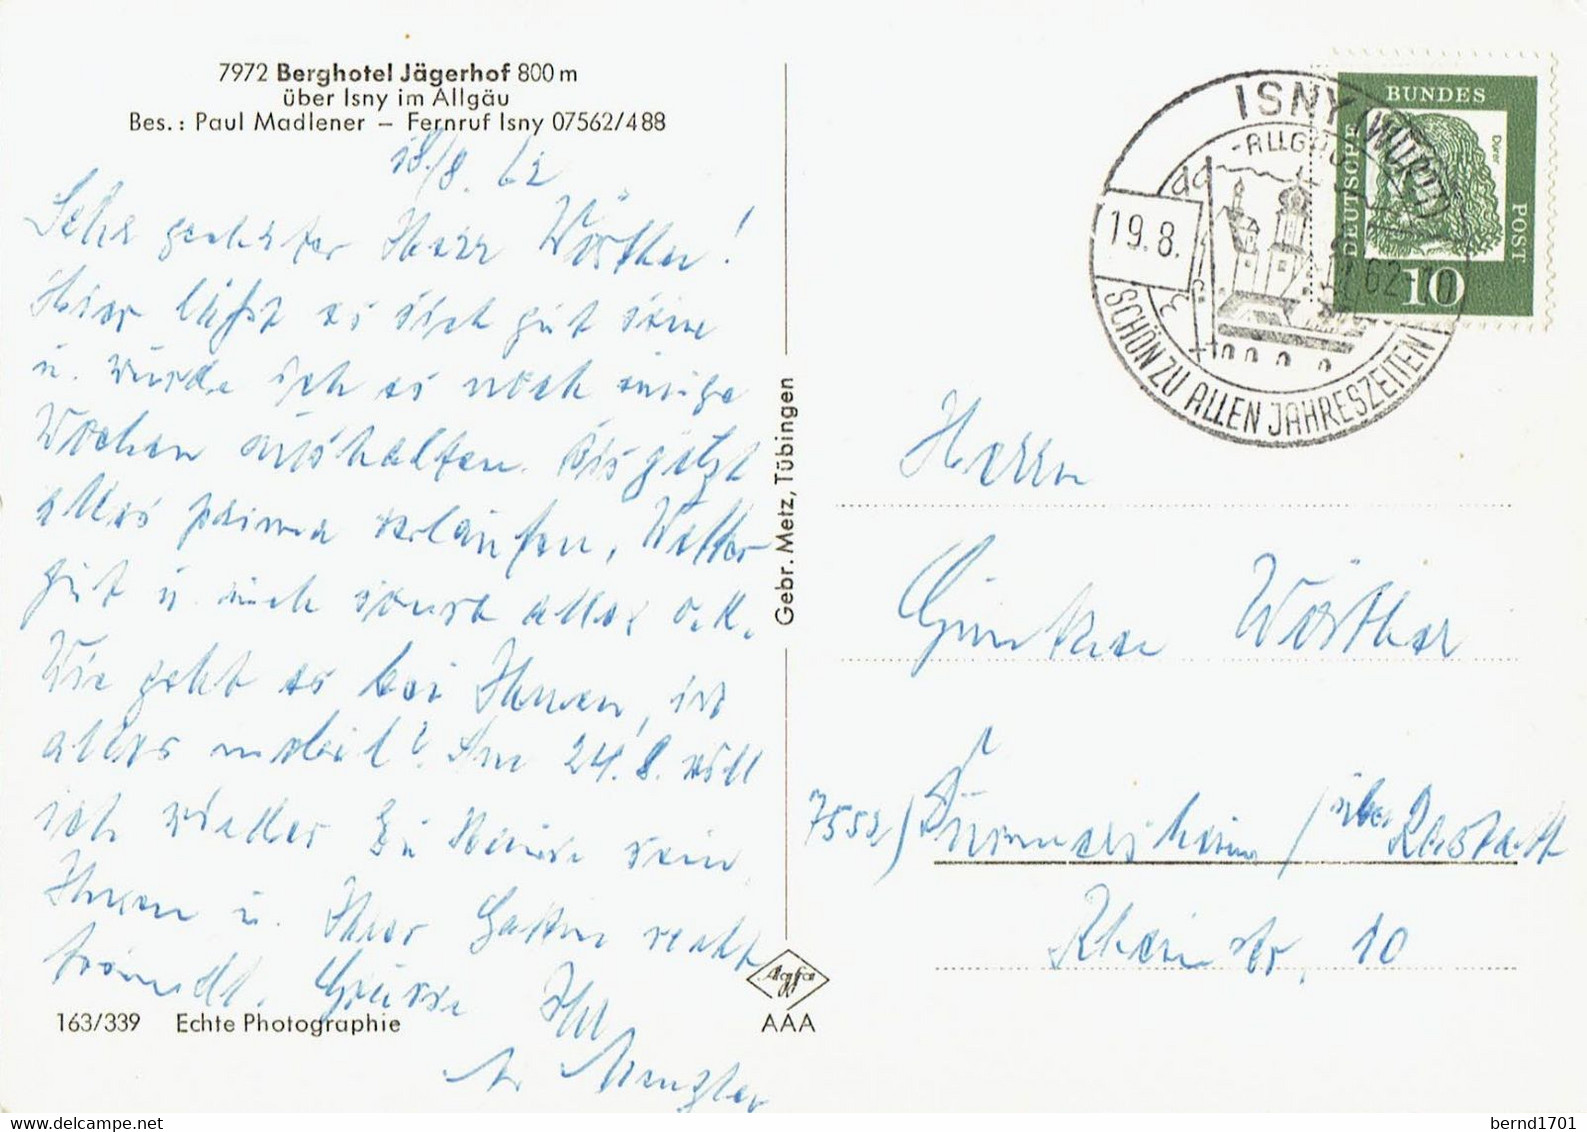 7972 Berghotel Jägerhof 800 m
über Isny im Allgäu
Bes.: Paul Madlener – Fernruf Isny 07562/488
18/8. 62
Sehr geehrter Herr Wörther!
Hier läßt es sich gut sein
u. würde ich es noch einige
Wochen aushalten. Bis jetzt
alles prima verlaufen, Wetter
gut u. auch sonst alles o.k.
Wie geht es bei Ihnen, ist
alles mobil? Am 24. 8. will
ich wieder zu Hause sein
Ihnen u. Ihrer Gattin recht
freundl. Grüsse Ihr
163/339 Echte Photographie
Gebr. Metz, Tübingen
Agfa
AAA
ISNY (WÜRTT)
-ALLGÄU-
19.8.
62-10
SCHÖN ZU ALLEN JAHRESZEITEN
DEUTSCHE
BUNDES
POST
Dürer
10
Herrn
Günther Wörther
7552) Durmersheim / über Rastatt
Rheinstr. 10
delcampe.net
bernd1701